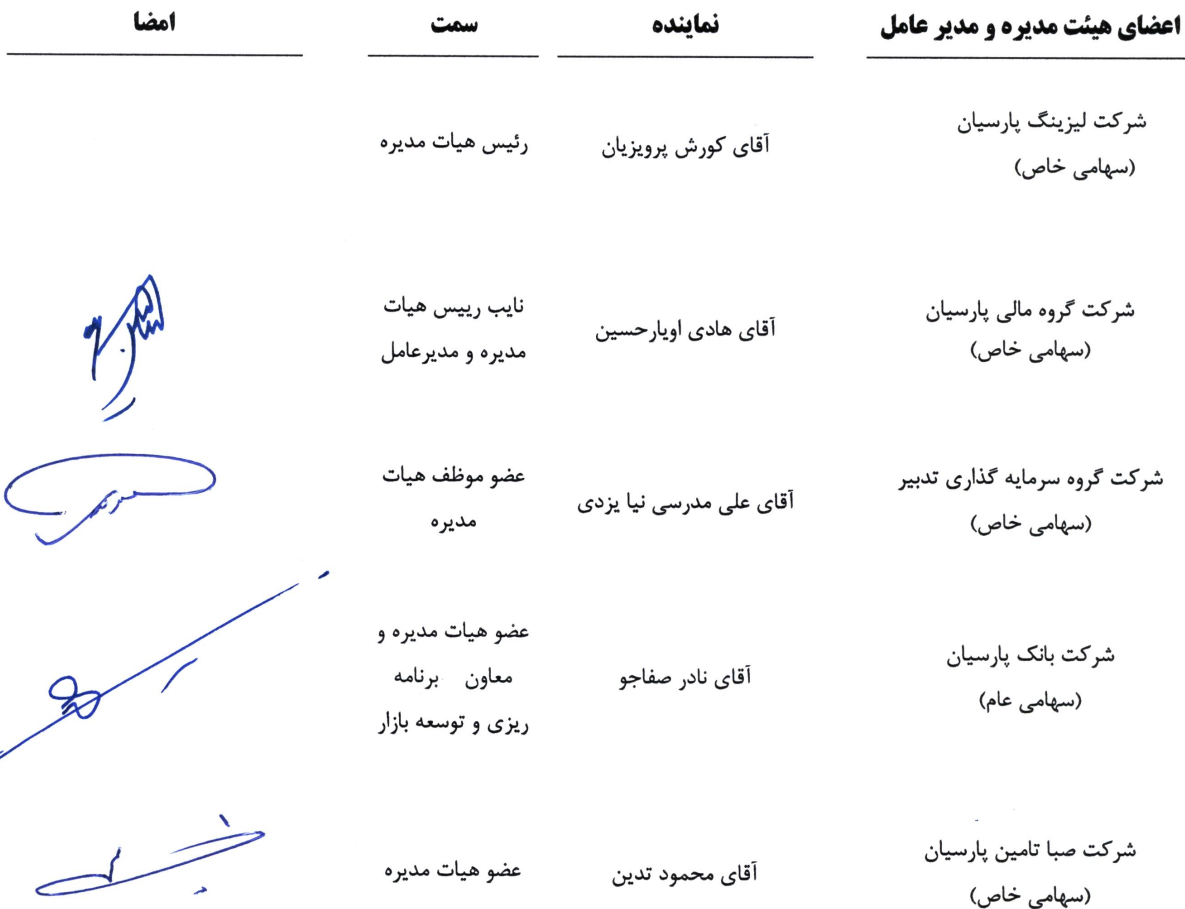 اعضای هیئت مدیره و مدیر عامل نماینده سمت امضا
شرکت لیزینگ پارسیان
(سهامی خاص)
آقای کورش پرویزیان
رئیس هیات مدیره
شرکت گروه مالی پارسیان
(سهامی خاص)
آقای هادی اویارحسین
نایب رییس هیات
مدیره و مدیرعامل
شرکت گروه سرمایه گذاری تدبیر
(سهامی خاص)
آقای علی مدرسی نیا یزدی
عضو موظف هیات
مدیره
شرکت بانک پارسیان
(سهامی عام)
آقای نادر صفاجو
عضو هیات مدیره و
معاون برنامه
ریزی و توسعه بازار
شرکت صبا تامین پارسیان
(سهامی خاص)
آقای محمود تدین
عضو هیات مدیره